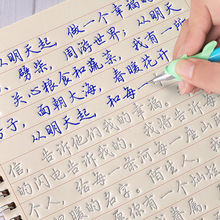 从明天起 做一个幸福的
劈柴，周游世界，从明天
关心粮食和蔬菜，我有一所
子，面朝大海，春暖花开
从明天起，和每
信，告诉他们我的幸福，
的闪电告诉我的，我将告诉每
个人，给每一条河每一座山
暖的名字。陌生人，
愿你有一个灿